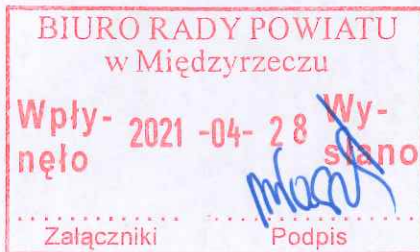 BIURO RADY POWIATU
w Międzyrzeczu
Wpły- 2021 -04- 28 Wy-
nęło słano
Załączniki Podpis